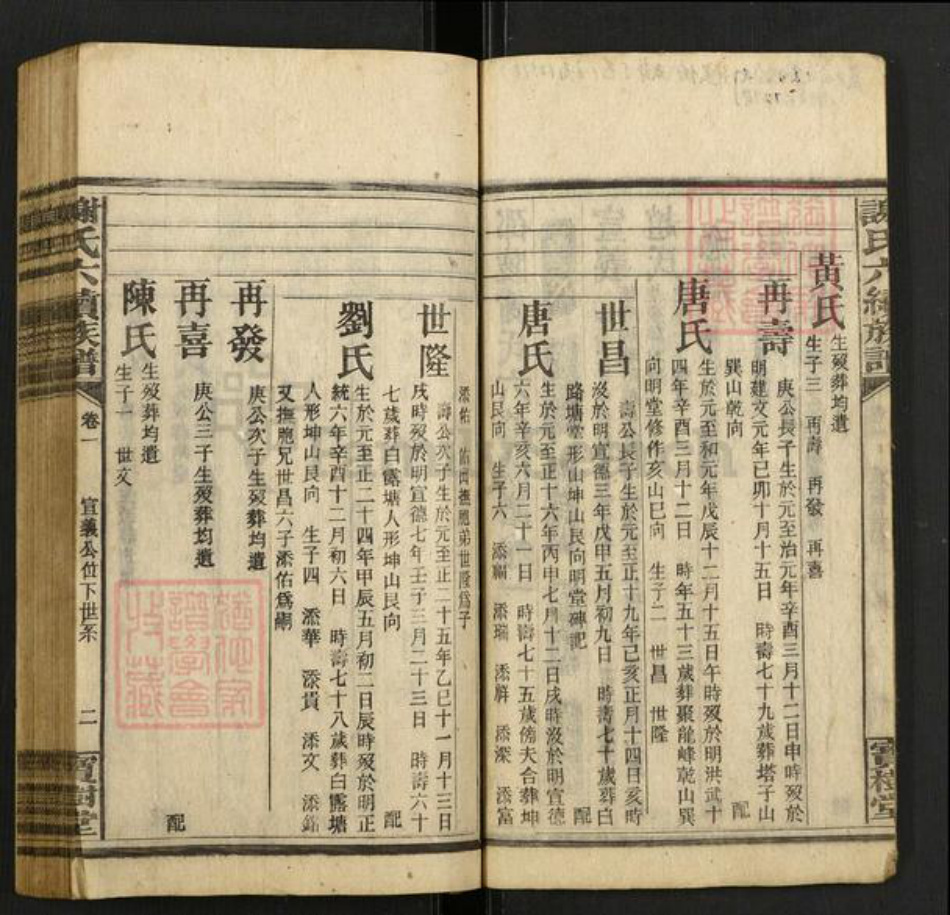 謝氏六續族譜
寶樹堂
黃氏
生歿葬均遺
生子三 再壽 再發 再喜
再壽
庚公長子生於元至治元年辛酉三月十二日申時歿於
明建文元年己卯十月十五日 時壽七十九歲葬塔子山
巽山乾向 配
唐氏
生於元至和元年戊辰十二月十五日午時歿於明洪武十
四年辛酉三月十二日 時年五十三歲葬聚龍峰乾山巽
向明堂修作亥山巳向 生子二 世昌 世隆
世昌
壽公長子生於元至正十九年己亥正月十四日亥時
歿於明宣德三年戊申五月初九日 時壽七十歲葬白
路塘堂形山坤山艮向明堂碑記 配
唐氏
生於元至正十六年丙申七月十二日戌時歿於明宣德
六年辛亥六月二十一日 時壽七十五歲傍夫合葬坤
山艮向 生子六 添福 添瑞 添祥 添深 添富
添佑 佑出撫胞弟世隆爲子
世隆
壽公次子生於元至正二十五年乙巳十一月十三日
戌時歿於明宣德七年壬子三月二十三日 時壽六十
七歲葬白露塘人形坤山艮向 配
劉氏
生於元至正二十四年甲辰五月初二日辰時歿於明正
統六年辛酉十二月初六日 時壽七十八歲葬白露塘
人形坤山艮向 生子四 添華 添貴 添文 添銘
又撫胞兄世昌六子添佑爲嗣
再發
庚公次子生歿葬均遺
再喜
庚公三子生歿葬均遺 配
陳氏
生歿葬均遺
生子一 世文
謝氏六續族譜
卷一
宜義公位下世系
二
寶樹堂